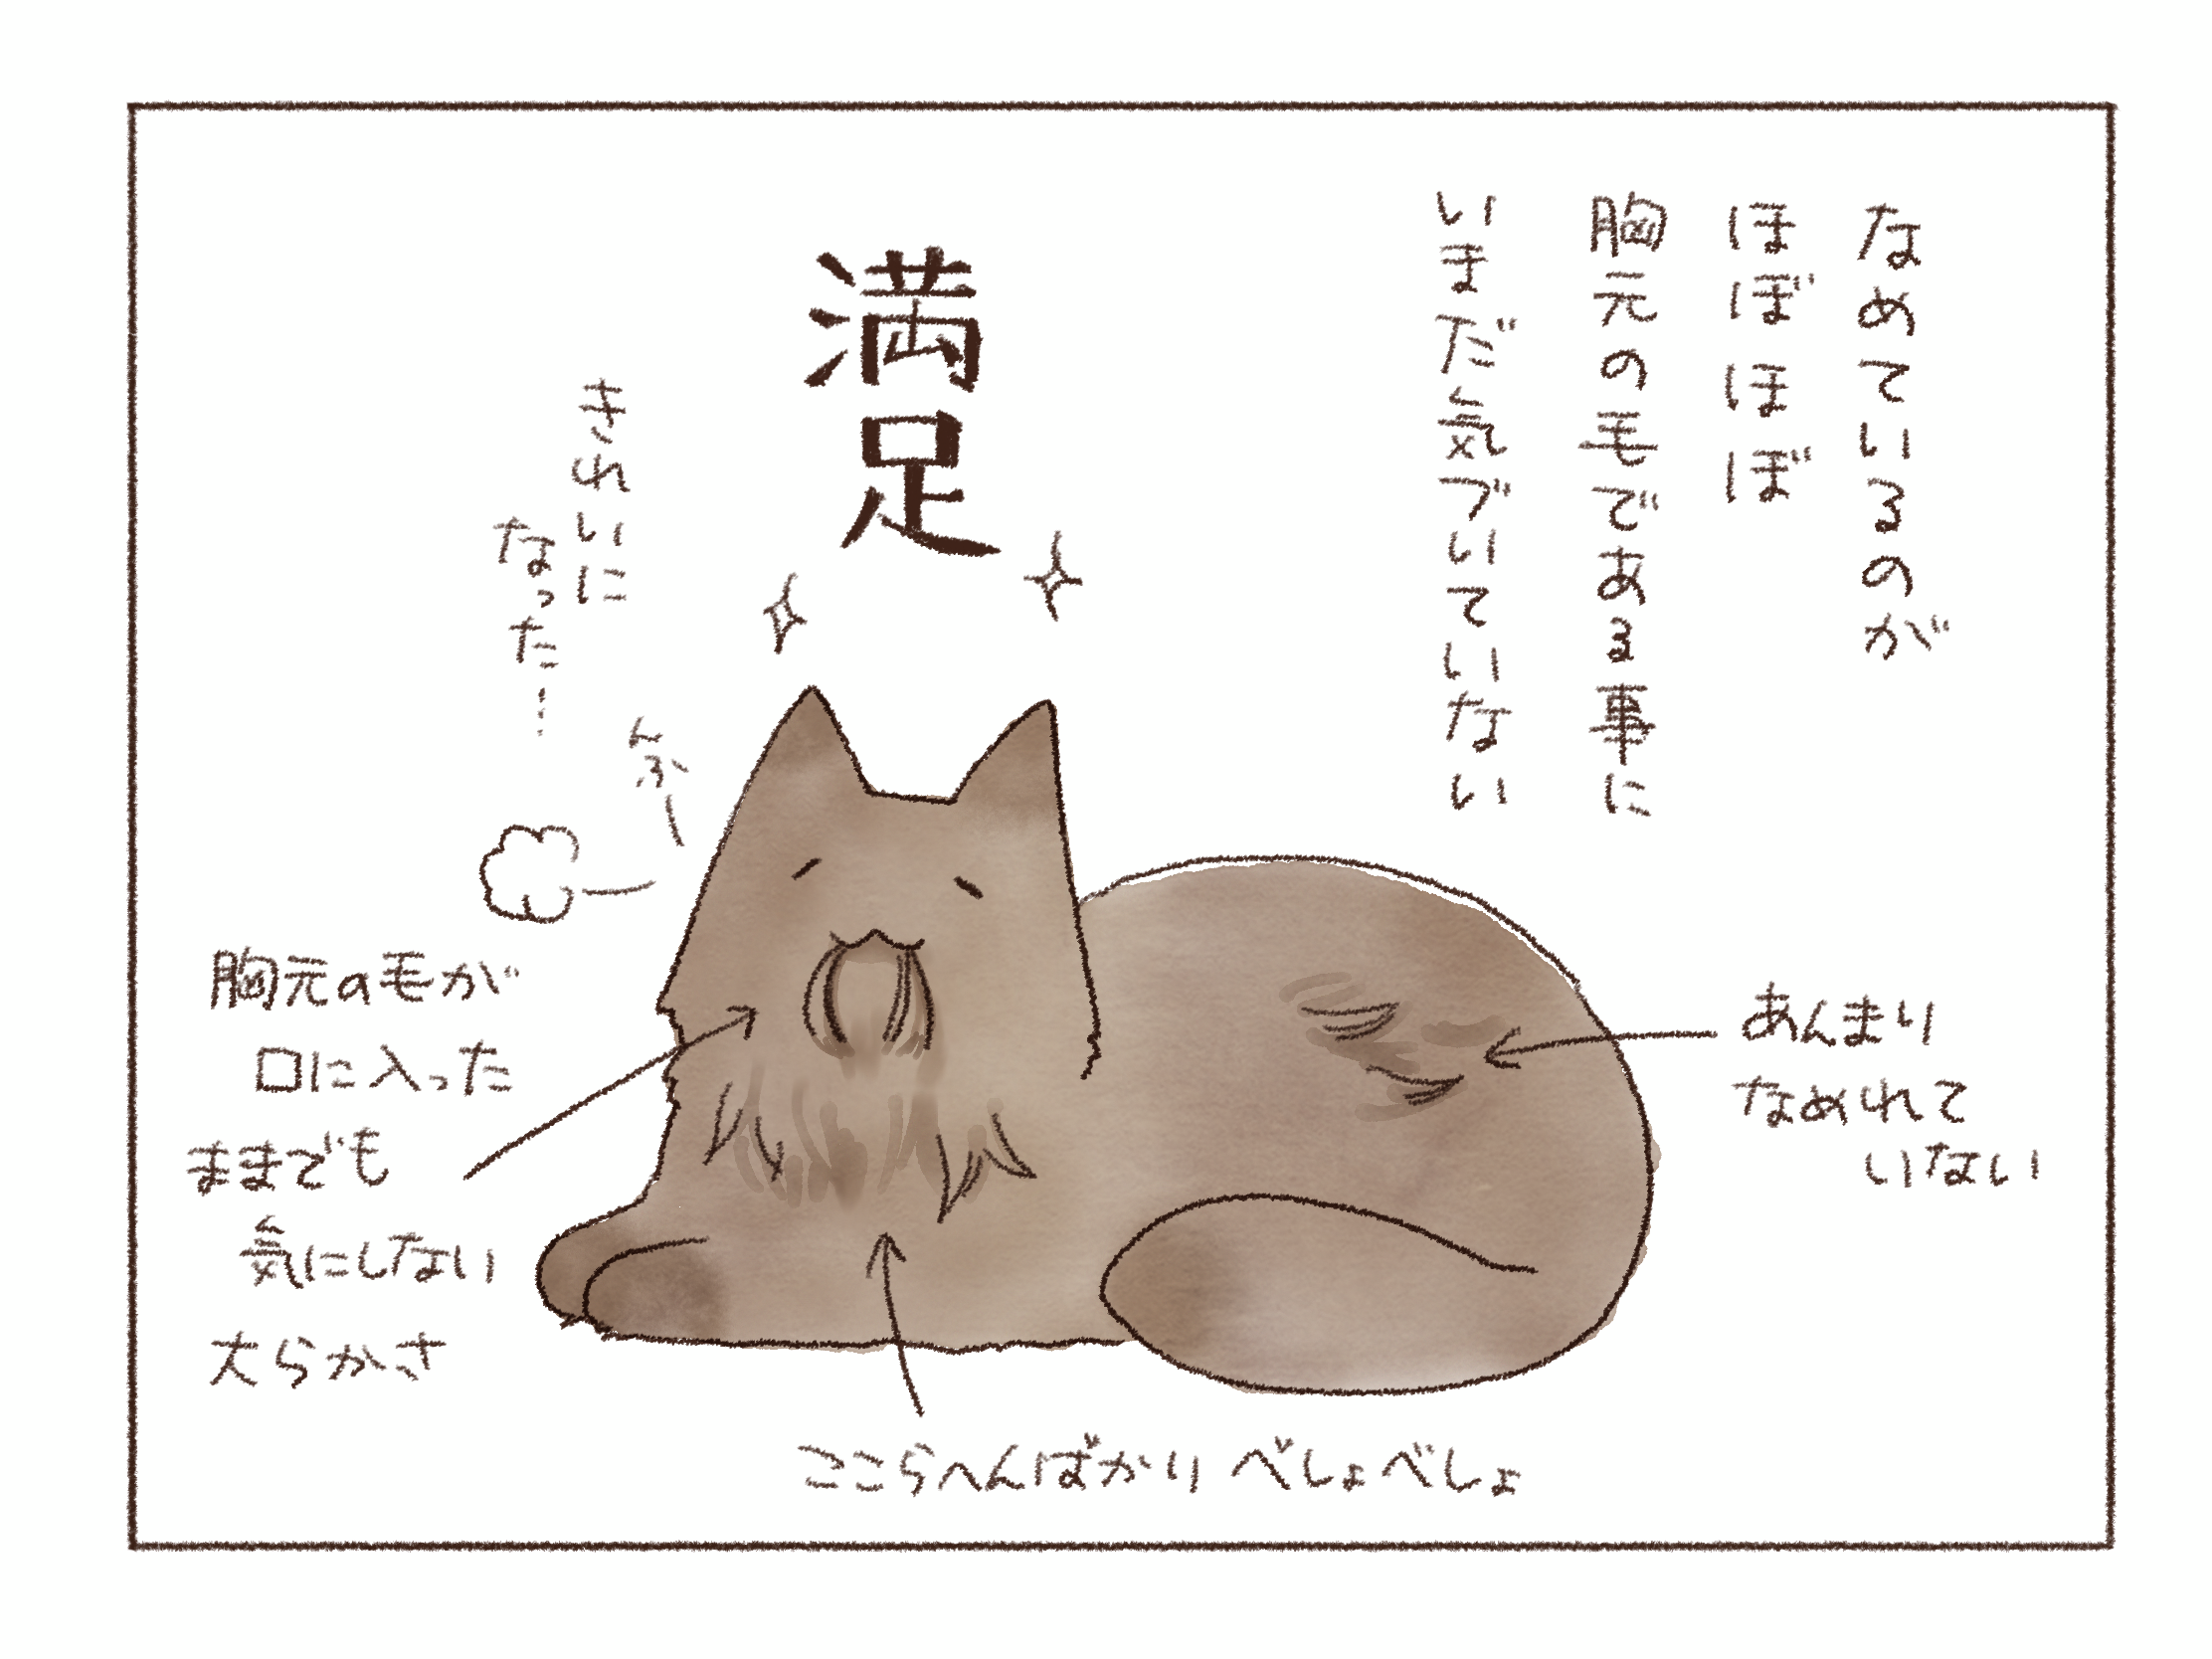 なめているのが
ほぼほぼ
胸元の毛である事に
いまだ気づいていない
満足
きれいに
なった…
んふー
胸元の毛が
口に入った
ままでも
気にしない
大らかさ
あんまり
なめれて
いない
ここらへんばかりべしょべしょ